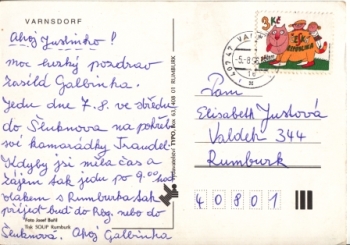 VARNSDORF
Ahoj Justinko!
moc hezký pozdrav
zasílá Galbinka.
Jedu dne 7.8. ve středu
do Šluknova na pohřeb
své kamarádky Traudel.
Kdyby jsi měla čas a
zájem tak jedu po 9.00 hod
vlakem s Rumburka tak
přijeď buď do Rbg. nebo do
Foto Josef Bufil
Tisk SOUP Rumburk
Šluknova. Ahoj Galbinka
Vydavatelství TYPO, P.O. Box 63, 408 01 RUMBURK
407 47 VA
-5.-8.
3 Kč
ČESKÁ
REPUBLIKA
Paní
Elisabeth Justová
Valdek 344
Rumburk
40801